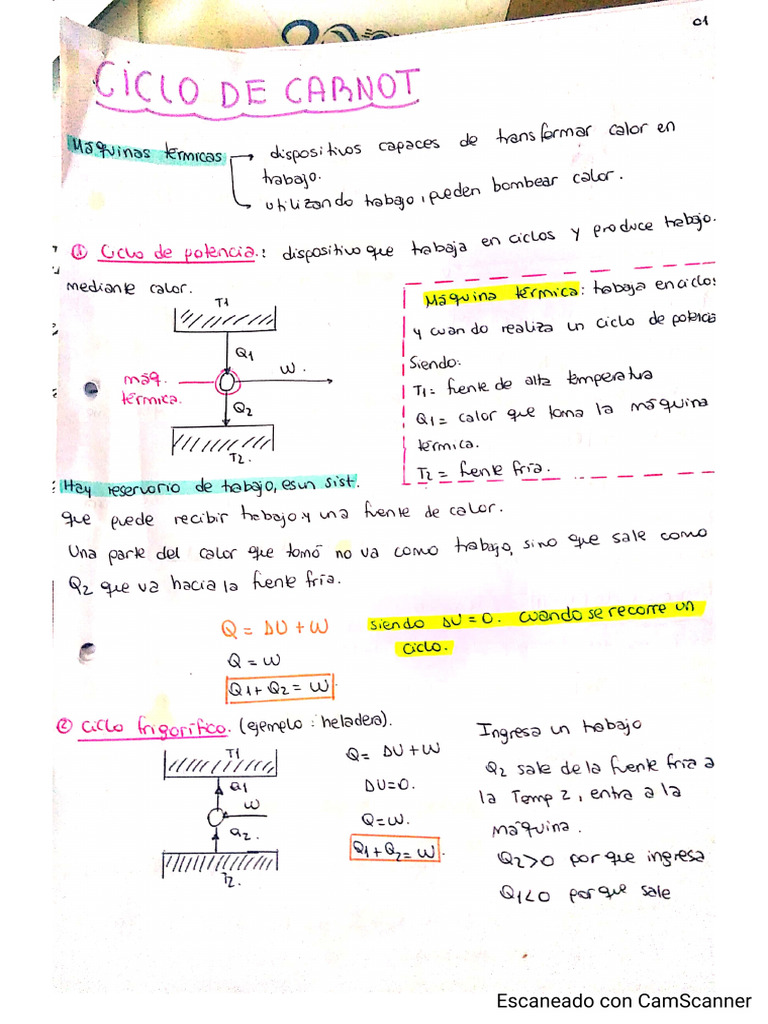 01
CICLO DE CARNOT
Máquinas térmicas → dispositivos capaces de transformar calor en
trabajo.
→ utilizando trabajo, pueden bombear calor.
① Ciclo de potencia.: dispositivo que trabaja en ciclos y produce trabajo.
mediante calor.
T1
Q1
W.
máq.
térmica.
Q2
T2.
Máquina térmica: trabaja en ciclos
y cuando realiza un ciclo de potencia
Siendo:
T1= fuente de alta temperatura
Q1= calor que toma la máquina
térmica.
T2= fuente fría.
Hay reservorio de trabajo, es un sist.
que puede recibir trabajo y una fuente de calor.
Una parte del calor que tomó no va como trabajo, sino que sale como
Q2 que va hacia la fuente fría.
Q = ΔU + W
siendo ΔU = 0. cuando se recorre un
ciclo.
Q = W
Q1 + Q2 = W
② Ciclo frigorífico. (ejemplo: heladera).
T1
Q1
W
Q2.
T2.
Q= ΔU + W
ΔU=0.
Q=W.
Q1 + Q2 = W.
Ingresa un trabajo
Q2 sale de la fuente fría a
la Temp 2, entra a la
máquina.
Q2>0 porque ingresa
Q1<0 porque sale
Escaneado con CamScanner